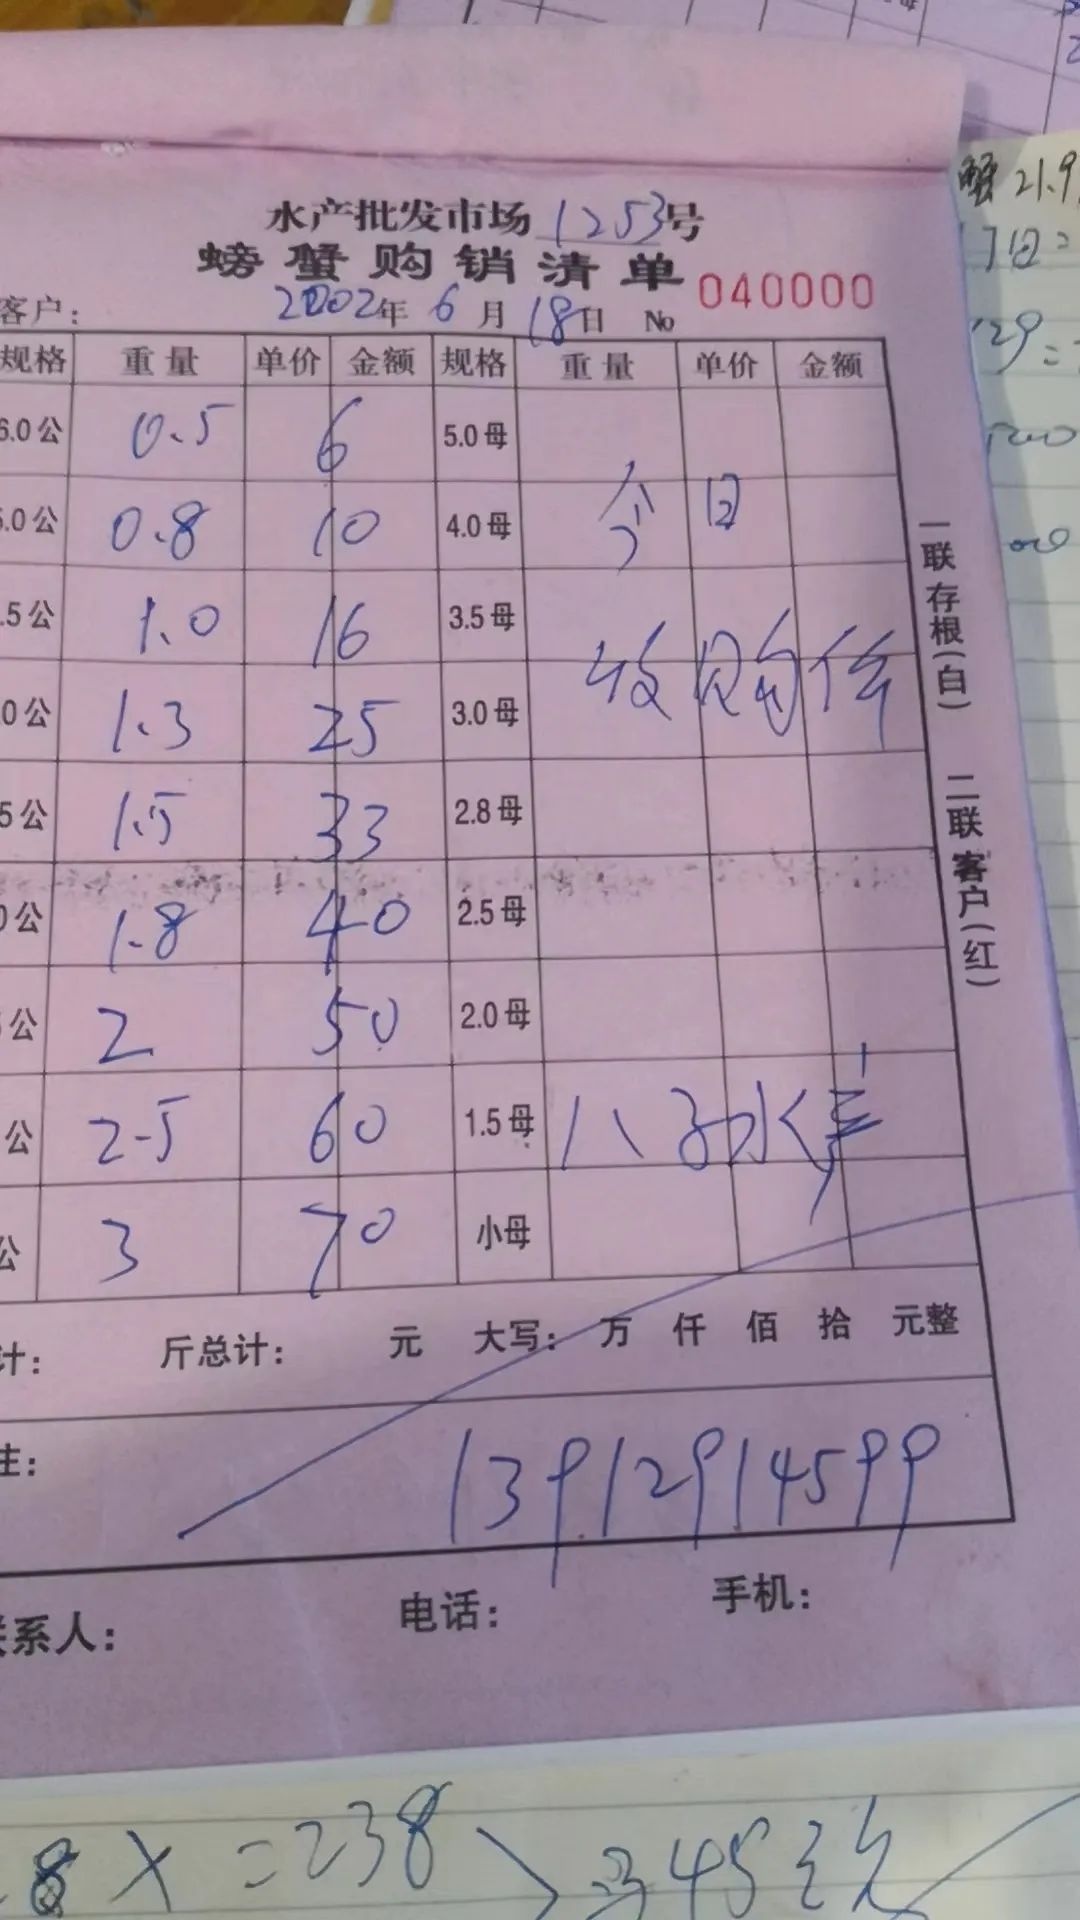 水产批发市场 1253号
螃蟹购销清单
客户： 2002年 6月 18日 No 040000
规格 重量 单价 金额 规格 重量 单价 金额
6.0公 0.5 6 5.0母
5.0公 0.8 10 4.0母 今日
.5公 1.0 16 3.5母
收购价
0公 1.3 25 3.0母
5公 1.5 33 2.8母
0公 1.8 40 2.5母
公 2 50 2.0母
公 2.5 60 1.5母 八 水
公 3 70 小母
计： 斤总计： 元 大写： 万 仟 佰 拾 元整
注： 13912914599
联系人： 电话： 手机：
一联存根(白) 二联客户(红)
蟹 21.9
17日=
29=
500
00
.8 X =238 345元